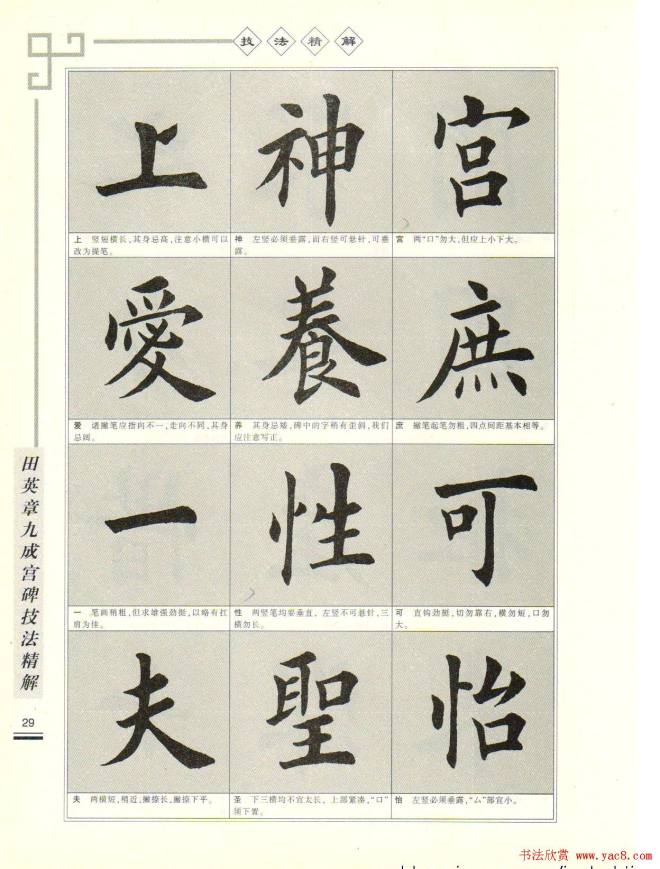 技法精解
上 神 宫
上 竖短横长，其身忌高，注意小横可以
改为提笔。
神 左竖必须垂露，而右竖可悬针，可垂
露。
宫 两“口”勿大，但应上小下大。
愛 養 庶
爱 诸撇笔应指向不一，走向不同，其身
忌阔。
养 其身忌矮，碑中的字稍有歪斜，我们
应注意写正。
庶 撇笔起笔勿粗，四点间距基本相等。
一 性 可
一 笔画稍粗，但求雄强劲挺，以略有扛
肩为佳。
性 两竖笔均要垂直，左竖不可悬针，三
横勿长。
可 直钩劲挺，切勿靠右，横勿短，口勿
大。
夫 聖 怡
夫 两横短，稍近，撇捺长，撇捺下平。
圣 下三横均不宜太长，上部紧凑，“口”
须下置。
怡 左竖必须垂露，“厶”部宜小。
田英章九成宫碑技法精解
29
书法欣赏 www.yac8.com